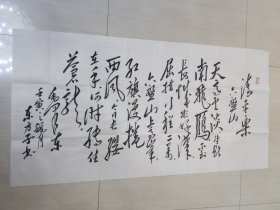 清平乐
六盘山
天高云淡望断
南飞雁不到
长城非好汉
屈指行程二万
六盘山上高峰
红旗漫卷
西风今日长缨
在手何时缚住
苍龙
毛泽东
壬寅之
东方子书